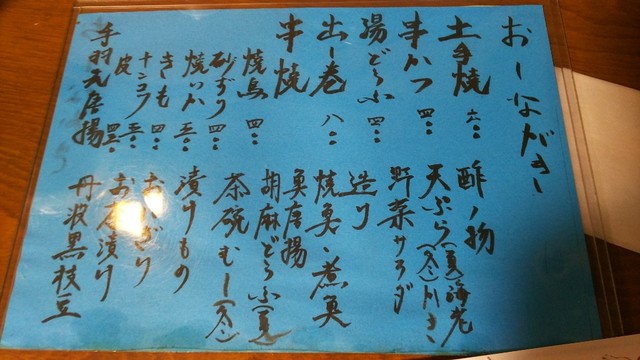 おしながき
土手焼 六〇〇
串かつ 四〇〇
湯どうふ 四〇〇
出し巻 八〇〇
串焼
焼鳥 四〇〇
砂ずり 四〇〇
焼いか 五〇〇
きも 四〇〇
ナンコツ 五〇〇
皮 四〇〇
手羽元唐揚
酢ノ物
天ぷら(夏)海老
(冬)かき
野菜サラダ
造り
焼魚、煮魚
魚唐揚
胡麻どうふ(夏)
茶碗むし(冬)
漬けもの
おにぎり
お茶漬け
丹波黒枝豆